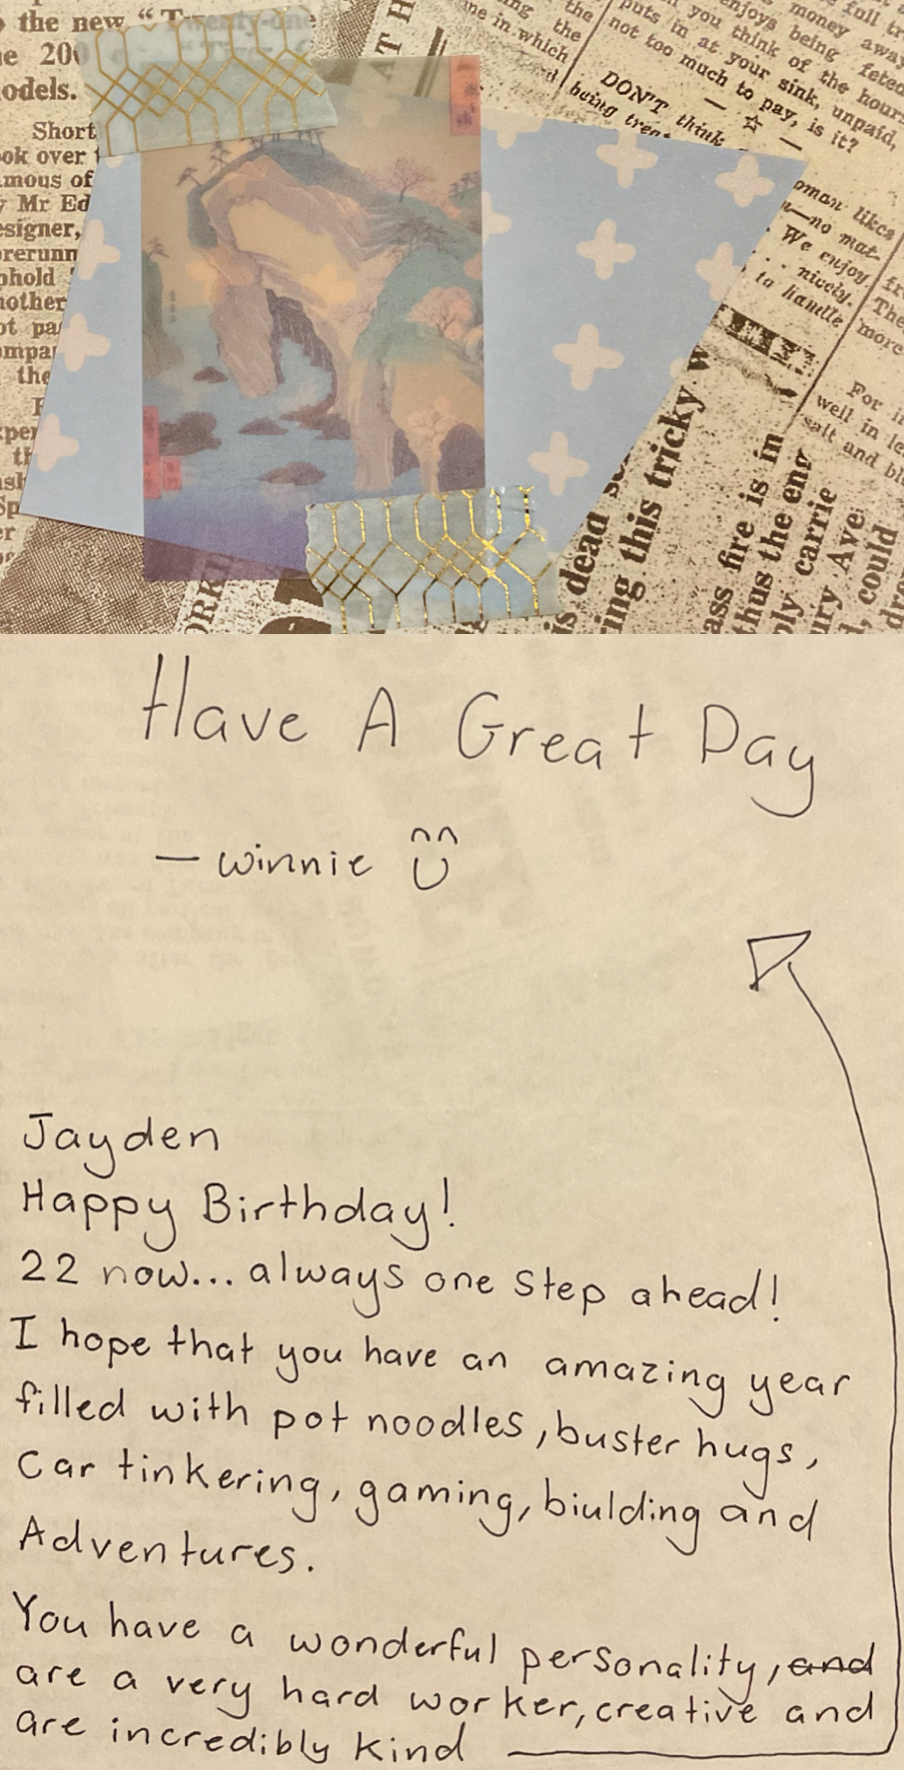 the new "Twenty-one
he 200
odels.
Short
ok over
amous of
y Mr Ed
esigner,
orerunn
phold
nother
ot pa
ompa
the
xper
er
AT H
ne in which
ing the
the
not too much to pay, is it?
puts in at your sink, unpaid,
you think of the hours
enjoys being feted
money away
full tr
DON'T think
being treat
oman likes
u—no mat-
We enjoy
... nicely.
to handle
fr
The
more
For i
well in le
salt and bl
is dead so
ring this tricky w
ass fire is in
thus the eng
ply carrie
ury Ave
d, could
dro
ORK
Have A Great Day
— winnie
Jayden
Happy Birthday!
22 now... always one step ahead!
I hope that you have an amazing year
filled with pot noodles, buster hugs,
Car tinkering, gaming, biulding and
Adventures.
You have a wonderful personality, and
are a very hard worker, creative and
are incredibly kind